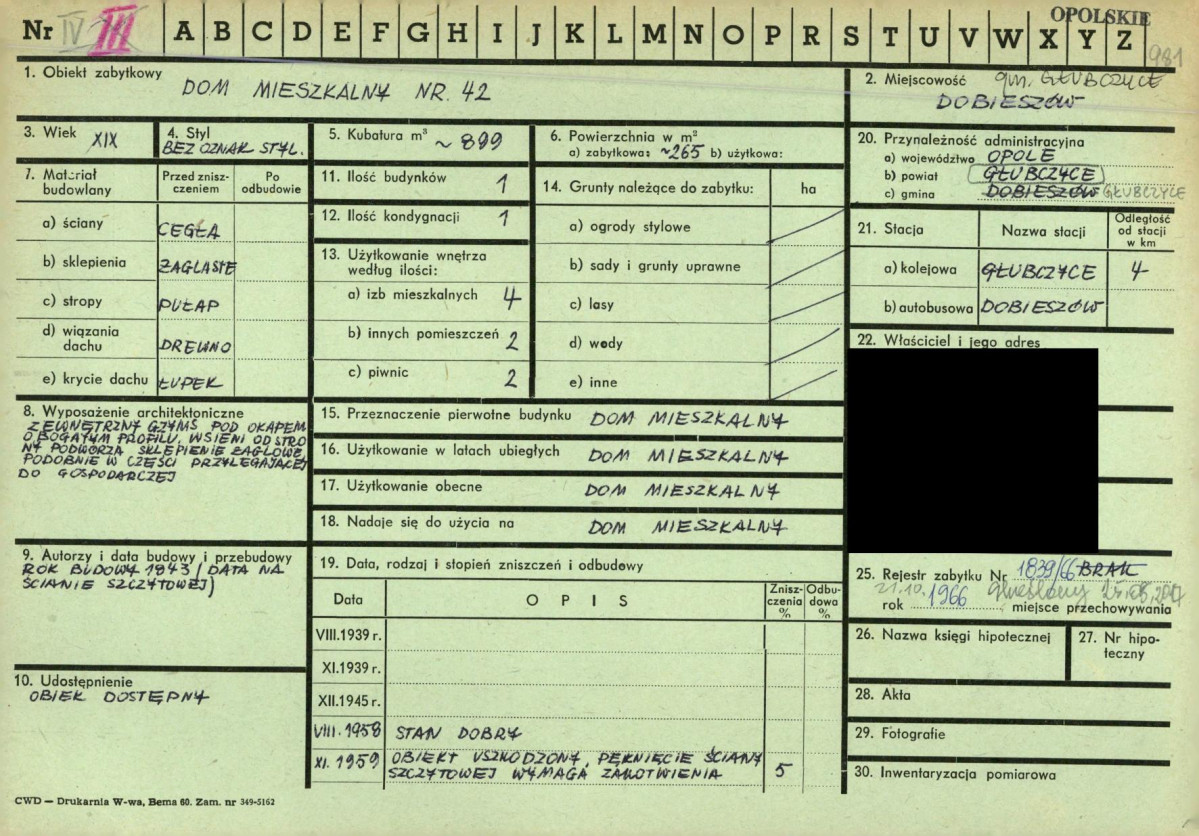 OPOLSKIE
Nr IV III A B C D E F G H I J K L M N O P R S T U V W X Y Z
981
1. Obiekt zabytkowy
DOM MIESZKALNY NR. 42
2. Miejscowość gm. GŁUBCZYCE
DOBIESZÓW
3. Wiek XIX
4. Styl
BEZ OZNAK STYL.
5. Kubatura m³ ~ 899
6. Powierzchnia w m²
a) zabytkowa: ~265 b) użytkowa:
7. Materiał budowlany
Przed zniszczeniem
Po odbudowie
a) ściany CEGŁA
b) sklepienia ŻAGLASTE
c) stropy PUŁAP
d) wiązania dachu DREWNO
e) krycie dachu ŁUPEK
8. Wyposażenie architektoniczne
ZEWNĘTRZNY GZYMS POD OKAPEM
O BOGATYM PROFILU. W SIENI OD STRO
NY PODWÓRZA SKLEPIENIE ŻAGLOWE,
PODOBNIE W CZĘŚCI PRZYLEGAJĄCEJ
DO GOSPODARCZEJ
9. Autorzy i data budowy i przebudowy
ROK BUDOWY 1843 (DATA NA
ŚCIANIE SZCZYTOWEJ)
10. Udostępnienie
OBIEK DOSTĘPNY
11. Ilość budynków 1
12. Ilość kondygnacji 1
13. Użytkowanie wnętrza
według ilości:
a) izb mieszkalnych 4
b) innych pomieszczeń 2
c) piwnic 2
14. Grunty należące do zabytku: ha
a) ogrody stylowe
b) sady i grunty uprawne
c) lasy
d) wody
e) inne
15. Przeznaczenie pierwotne budynku DOM MIESZKALNY
16. Użytkowanie w latach ubiegłych DOM MIESZKALNY
17. Użytkowanie obecne DOM MIESZKALNY
18. Nadaje się do użycia na DOM MIESZKALNY
19. Data, rodzaj i stopień zniszczeń i odbudowy
Data O P I S Zniszczenia % Odbudowa %
VIII.1939 r.
XI.1939 r.
XII.1945 r.
VIII.1958 STAN DOBRY
XI.1959 OBIEKT USZKODZONY, PĘKNIĘCIE ŚCIANY
SZCZYTOWEJ WYMAGA ZAKOTWIENIA 5
20. Przynależność administracyjna
a) województwo OPOLE
b) powiat GŁUBCZYCE
c) gmina DOBIESZÓW GŁUBCZYCE
21. Stacja
Nazwa stacji
Odległość od stacji w km
a) kolejowa GŁUBCZYCE 4
b) autobusowa DOBIESZÓW
22. Właściciel i jego adres
25. Rejestr zabytku Nr 1839/66 BRAK
21.10.
rok 1966 miejsce przechowywania
26. Nazwa księgi hipotecznej
27. Nr hipoteczny
28. Akta
29. Fotografie
30. Inwentaryzacja pomiarowa
CWD — Drukarnia W-wa, Bema 60. Zam. nr 349-5162